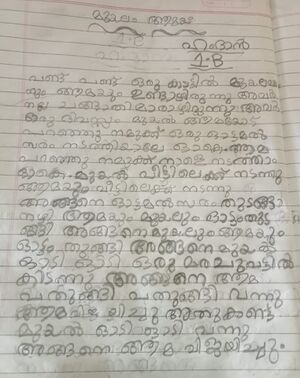 മുയലും ആമയും
ഹംദാൻ
1-B
പണ്ട് പണ്ട് ഒരു കാട്ടിൽ മുയലമ്മ
യും ആമയും ഉണ്ടായിരുന്നു അവർ
നല്ല ചങ്ങാതിമാരായിരുന്നു അവർ
ഒരു ദിവസം മുയൽ ആമയോട്
പറഞ്ഞു നമുക്ക് ഒരു ഓട്ടമൽ
സരം നടത്തിയാലോ ഓകെ ആമ
പറഞ്ഞു നമുക്ക് നാളെ നടത്താം
ഓകെ മുയൽ വീട്ടിലെക്ക് നടന്നു
ആമയും വീട്ടിലെക്ക് നടന്നു
അങ്ങനെ ഓട്ടമൽസരം തുടങ്ങാ
നായി ആമയും മുയലും ഓട്ടംതുട
ങ്ങി അങ്ങനെ മുയലും ആമയും
ഓട്ടം തുടങ്ങി അങ്ങനെ മുയൽ
ഓടി ഓടി ഒരു മരചുവട്ടിൽ
കിടന്നു അങ്ങനെ ആമ
പതുങ്ങി പതുങ്ങി വന്നു
ആമവിജയിച്ചു അതുകണ്ട്
മുയൽ ഓടി ഓടി വന്നു
അങ്ങനെ ആമ വിജയിച്ചു.